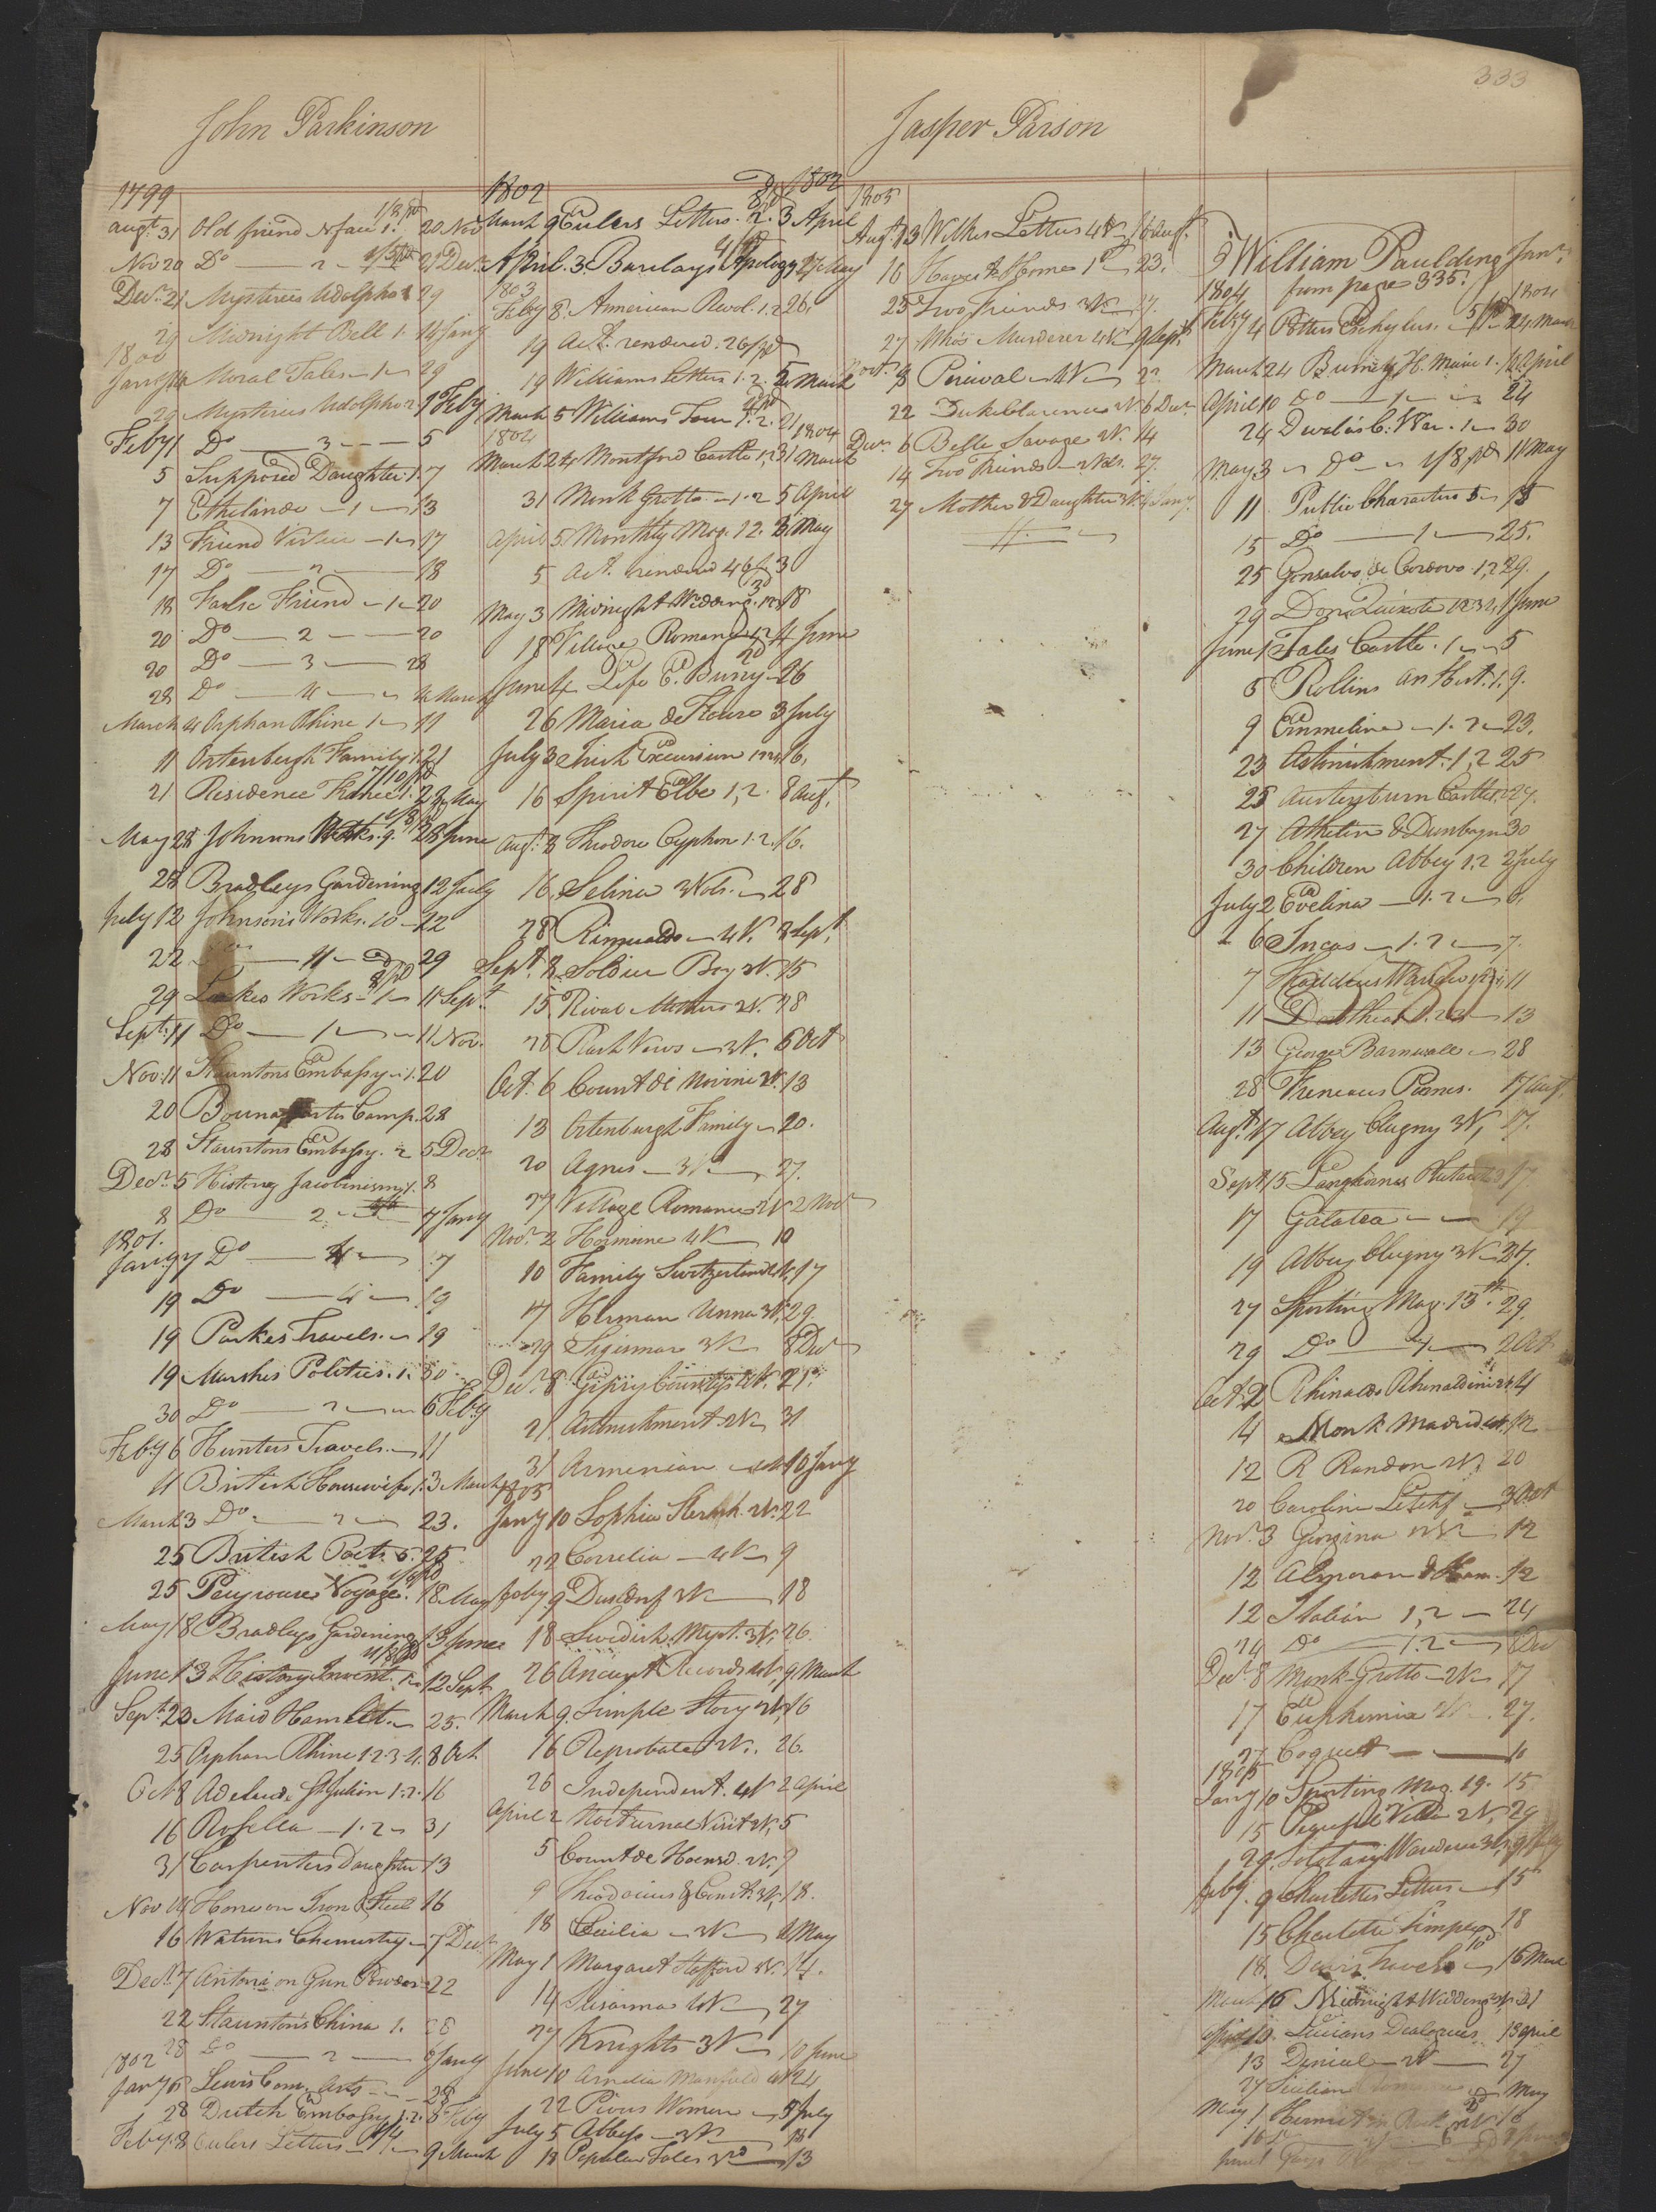 333
John Parkinson
1799
1/3 pd
Augt. 31 Old friend N face 1. 20 Nov
1/3 pd
Nov 20 Do 2 21 Decr
Decr. 21 Mysteries Udolpho 1 29
29 Midnight Bell 1. 14 Jany
1800
Jany 14 Moral Tales 1 29
29 Mysteries Udolpho 2. 1 Feby
Feby 1 Do 3 5
5 Supposed Daughter 1. 7
7 Ethelinde 1 13
13 Friend Virtue 1 17
17 Do 2 18
18 False Friend 1 20
20 Do 2 20
20 Do 3 28
28 Do 4 4 March
March 4 Orphan Rhine 1 11
11 Ortenburgh Family 1. 21
7/10 pd
21 Residence France 1. 23 May
May 28 Johnsons Works. 9. 28 June
28 Bradleys Gardening 12 July
July 12 Johnson's Works. 10 22
22 11 29
8/ pd
29 Lockes Works 1 11 Sept.
Sept. 11 Do 1 11 Nov.
Nov. 11 Stauntons Embassy 1. 20
20 Bounaparte Camp. 28
28 Stauntons Embassy. 2 5 Decr
Decr. 5 History Jacobinism 1. 8
8 Do 2 7 Jany
1801.
Jany 7 Do 7
19 Do 4 19
19 Parkes Travels. 19
19 Marshes Politics. 1. 30
30 Do 2 6 Feby
Feby 6 Hunters Travels 11
11 British Housewife 1. 3 March
March 3 Do 2 23.
25 British Poets. 5. 25
25 Peyrouse Voyage. 18 May
May 18 Bradleys Gardening 13 June
June 13 History Invent. 1. 12 Sept
Sept. 23 Maid Hamlet. 25.
25 Orphan Rhine 1 2 3 4. 8 Oct
Oct 8 Adelaide St Julien 1.2. 16
16 Rosella 1.2 31
31 Carpenters Daughter 13
Nov 14 Horne on Iron & Steel 16
16 Watsons Chemistry 7 Decr
Decr. 7 Antoni on Gun Powder 22
22 Staunton's China 1. 28
28 Do 2 6 Jany
1802
Jany 6 Lewis Com. Arts 28
28 Dutch Embassy 1.2. 8 Feby
Feby. 8 Eulers Letters 1 9 March
1802
1802
March 9 Eulers Letters. 2. 3 April
April 3 Barclays Apology 27 May
1803
Feby 8. American Revol. 1.2 26.
19 Act. rendered. 26/ pd
19 Williams Letters 1.2. 5 March
March 5 Williams Tour 1.2. 21
1804
1804
March 24 Montford Castle 1,2 31 March
31 Monk Grotto 1.2 5 April
April 5 Monthly Mag. 12. 3 May
5 Act. rendered 46/ 3
May 3 Midnight Wedding. 1 2 3 18
18 Village Romance 1.2 4 June
June 4 Life E. Bunny 26
26 Maria de Fleuro 3 July
July 3 Irish Excursion 16.
16 Spirit Elbe 1,2. 8 Augt.
Augt. 8 Theodore Cyphon 1.2. 16.
16 Selina 3 Vols. 28
28 Rimualdo 4 V. 8 Sept.
Sept. 8 Soldier Boy 3 V. 15
15 Rival Mothers 2 V. 28
28 Rash Vows 3 V. 6 Oct
Oct. 6 Count di Novini 2 V. 13
13 Ortenburgh Family 20.
20 Agnes 3 V 27.
27 Village Romance 2 V 2 Novr
Novr. 2 Hermione 4 V 10
10 Family Switzerland 4 V. 17
17 Herman Unna 3 V. 29
29 Sigismar 3 V 8 Decr
Decr. 8 Gipsey Countess 4 V. 21.
21 Astonishment 2 V 31
31 Armenian 4 V 10 Jany
1805
Jany 10 Sophia Sternh. 2 V. 22
22 Correlia 4 V 9
Feby. 9 Dusseldorf 3 V 18
18 Swedish Myst. 3 V, 26.
26 Ancient Records 4 V, 9 March
March 9. Simple Story 2 V, 16
16 Reprobate 2 V. 26.
26 Independent. 4 V 2 April
April 2 Nocturnal Visit 2 V, 5
5 Count de Hoensd. 2 V. 9
9 Theodosius & Const. 3 V. 18.
18 Cecilia 3 V 1 May
May 1 Margaret Stafford V. 14.
14 Susanna 4 V 27
27 Knights 3 V 10 June
June 10 Amelia Mansfield 4 V 24
22 Pious Women 5 July
July 5 Abbess 3 V 13
13 Popular Tales 3 V 13
Jasper Parson
1805
Augt. 13 Wilkes Letters 4 V 16 Augt.
16 23.
25 Two Friends 3 V 27.
27 Miss Murderer 4 V 9 Sept.
9 Percival 4 V 22
22 Duke Clarence V. 6 Decr
Decr. 6 Belle Savage 2 V. 14
14 Two Friends 2 Vols. 27.
27 Mother & Daughter 3 V. 4 Jany.
William Paulding Junr.
1804 from page 335.
1804
Feby 4 Potters Eschylus. 24 March
March 24 Burneys H. Music 1. 10 April
April 10 Do 1 24
24 30
May 3 Do 1/8 pd 11 May
11 Public Characters 5 15
15 Do 1 25.
25 Gonsalvo de Cordova 1,2 29.
29 Don Quixote 1 2 3 4, 1 June
June 1 Tales Castle. 1 5
5 Rollins An Hist. 1. 9.
9 Emmeline 1.2 23.
23 Astonishment. 1,2 25
25 Austenburn Castle 1,2 27.
27 Athelin & Dunbayn 30
30 Children Abbey 1,2 2 July
July 2 Evelina 1.2 6.
6 Incas 1.2 7.
7 11
11 Dorothea 1.2.3 13
13 George Barnwell 28
28 Freneaus Poems. 17 Augt.
Augt. 17 Abbey Clugny 3 V, 17.
Sept 15 Langhornes Plutarch 17
17 Galatea 19
19 Abbey Clugny 3 V 27.
27 Sporting Mag. 15th. 29.
29 Do 2 Oct
Oct. 2 Rhinaldo Rhinaldini 4
4 Monk Madrid 12
12 R Random 2 V. 20
20 Caroline Litchf. 3 Oct
Novr. 3 Georgina 2 V 12
12 Almoran & Ham. 12
12 Italian 1,2 24
24 Do 1.2 8 Decr
Decr. 8 Monk Grotto 2 V 17
17 Euphemia V 27.
27 Coquet 10
1805
Jany 10 Sporting Mag. 19. 15
15 2 V, 29
29 Solitary Wanderer 3 V, 9 Feby
Feby. 9 Charlottes Letters 15
15 Charlotte Temple 18
18. Travels 16 March
March 16 Midnight Wedding 3 V 31
April 10. Lucians Dialogues 13 April
13 Denial V 27
27 Sicilian Romance May
May 1 Hermit 16